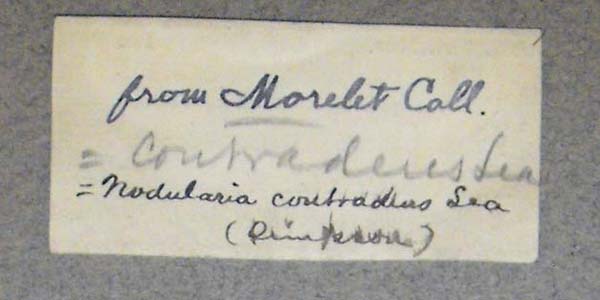 from Morelet Coll.
= Contradens Lea
= Nodularia contradens Lea
(Simpson)